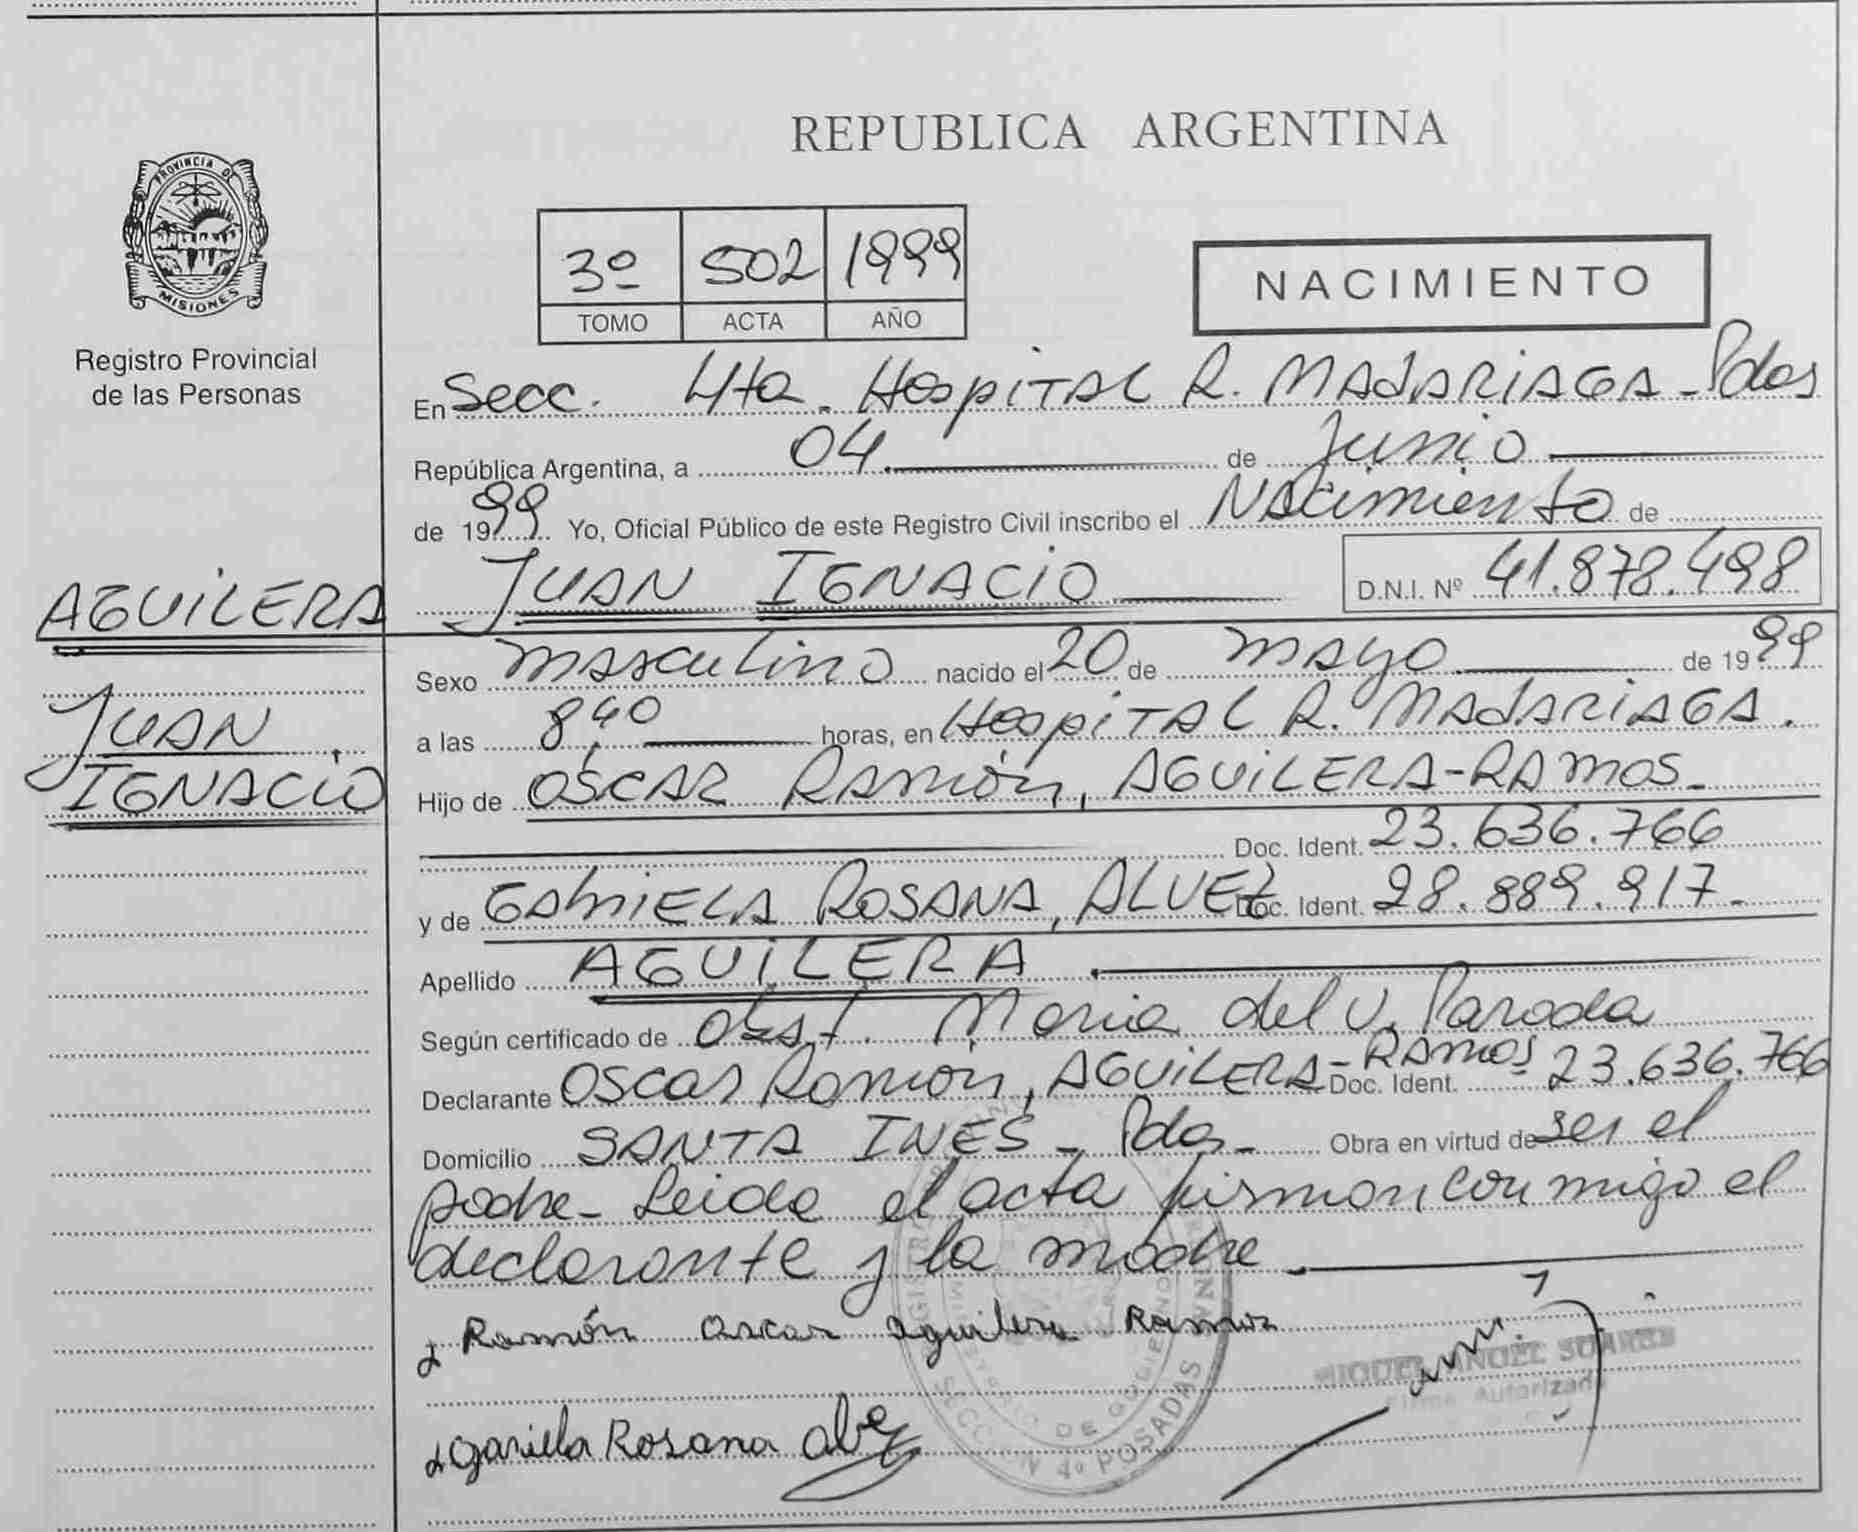 PROVINCIA DE
MISIONES
Registro Provincial
de las Personas
AGUILERA
JUAN
IGNACIO
REPUBLICA ARGENTINA
3º 502 1999
TOMO ACTA AÑO
NACIMIENTO
En Secc. 4ta. Hospital R. MADARIAGA - Pdas
República Argentina, a 04 de Junio
de 1999 Yo, Oficial Público de este Registro Civil inscribo el Nacimiento de
JUAN IGNACIO D.N.I. Nº 41.878.498
Sexo masculino nacido el 20 de mayo de 1999
a las 8,40 horas, en Hospital R. MADARIAGA.
Hijo de OSCAR RAMÓN, AGUILERA-RAMOS-
Doc. Ident. 23.636.766
y de GABRIELA ROSANA, ALVEZ Doc. Ident. 28.889.917-
Apellido AGUILERA
Según certificado de Obst. Maria del V. Paroda
Declarante Oscar Ramón, AGUILERA-RAMOS Doc. Ident. 23.636.766
Domicilio SANTA INES - Pdas- Obra en virtud de ser el
padre- Leida el acta firman con migo el
declarante y la madre.
Ramón Oscar Aguilera Ramos
Gariela Rosana Alvez
MIGUEL ANGEL SUAREZ
Firma Autorizada
SECCION 4º POSADAS